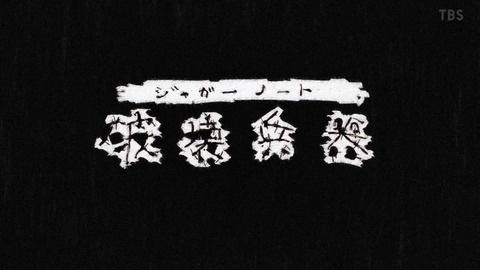 TBS
ジャガーノート
破壊兵器